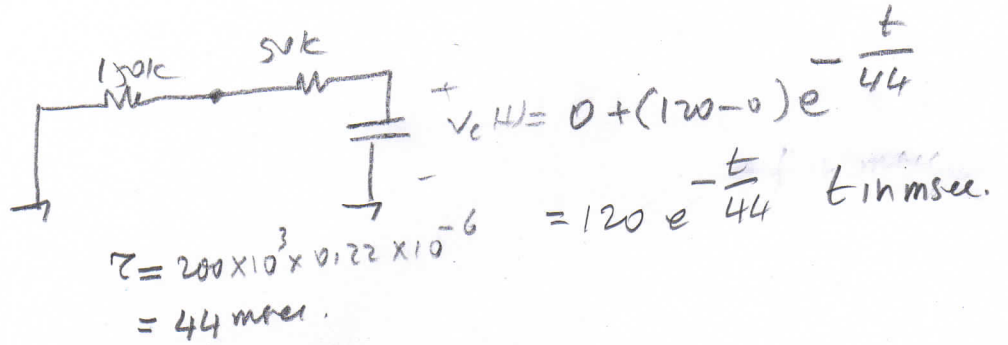 150k
50k
+
Vc(t) = 0 + (120-0) e^{-t/44}
-
= 120 e^{-t/44} t in msec.
τ = 200×10³×0.22×10⁻⁶
= 44 msec.